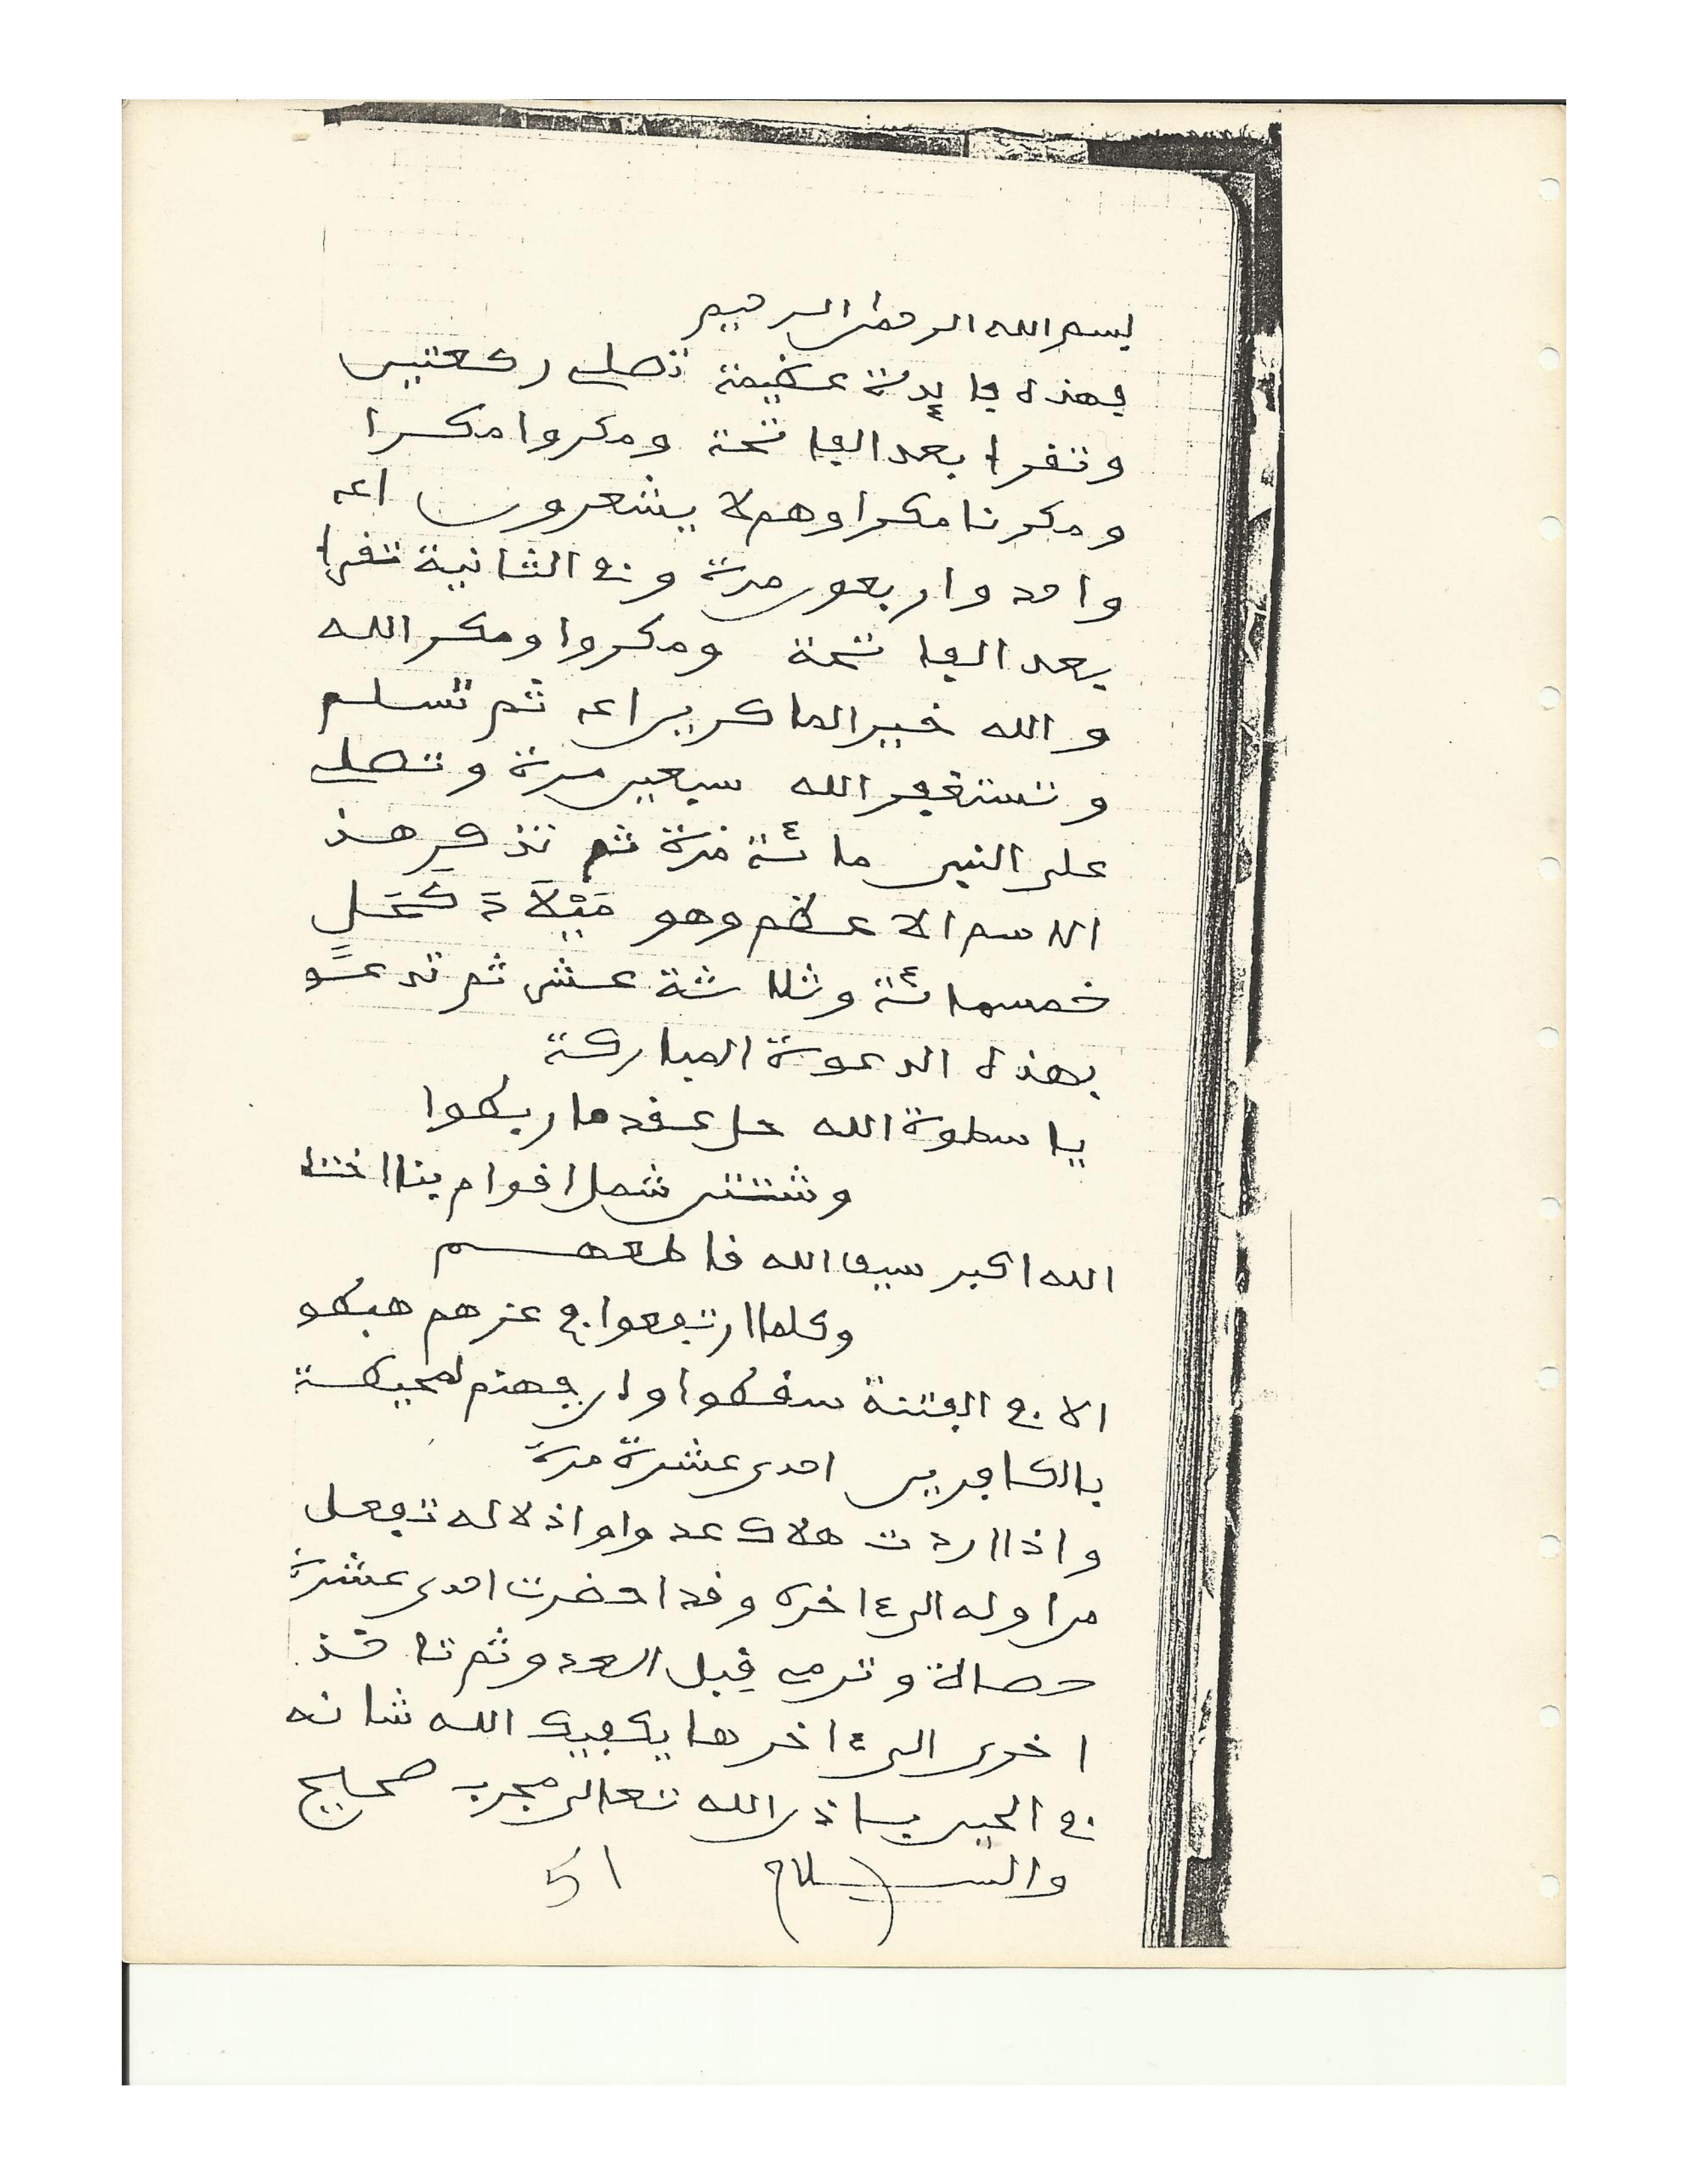 بسم الله الرحمن الرحيم
فهذه فايدة عظيمة تصلي ركعتين
وتقرأ بعد الفاتحة ومكروا مكرا
ومكرنا مكرا وهم لا يشعرون اعه
واحد واربعون مرة وفي الثانية تقرأ
بعد الفاتحة ومكروا ومكر الله
والله خير الماكرين اعه ثم تسلم
وتستغفر الله سبعين مرة وتصلي
على النبي مائة مرة ثم تذكر هذ
الاسم الاعظم وهو
خمسمائة وثلاثة عشر ثم تدعو
بهذه الدعوة المباركة
يا سطوة الله حل عقد ما ربطوا
وشتت شمل اقوام بنا اختلط
الله اكبر سيف الله قاطعهم
وكلما ارتفعوا في عزهم هبطو
الا في الفتنة سقطوا وان جهنم لمحيطة
بالكافرين احدى عشرة مرة
واذا اردت هلاك عدو او اذلاله تفعل
من اوله الى ءاخره وقد احضرت احدى عشرة
حصاة وترمي قبل العدو ثم تاخذ
اخرى الى ءاخرها يكفيك الله شانه
في الحين باذن الله تعالى مجرب صحيح
والسلام 51